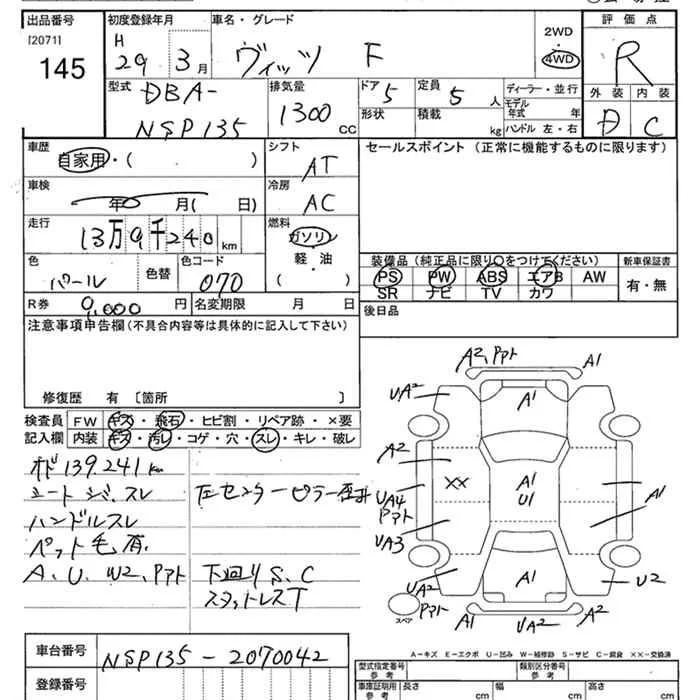 出品番号 初度登録年月 車名・グレード 2WD 評価点
[2071] H ・
145 29 3月 ヴィッツ F 4WD R
型式 DBA- 排気量 ドア 5 定員 5人 ディーラー・並行 外装 内装
NSP135 1300cc 形状 積載 kg モデル年式 年 D C
ハンドル 左・右
車歴 シフト セールスポイント (正常に機能するものに限ります)
自家用・( ) AT
車検 冷房
年 月( 日) AC
走行 燃料
13万9千240km ガソリン
軽・油
( )
装備品(純正品に限り○をつけてください) 新車保証書
色 色替 色コード PS PW ABS エアB AW 有・無
パール 070 SR ナビ TV カワ
R券 9,000円 名変期限 月 日 後日品
注意事項申告欄(不具合内容等は具体的に記入して下さい)
修復歴 有 〔箇所 〕
検査員 FW キズ・飛石・ヒビ割・リペア跡・×要
記入欄 内装 キズ・汚レ・コゲ・穴・スレ・キレ・破レ
オド139.241km
シートシミ.スレ 左センターピラー歪み
ハンドルスレ
ペット毛有.
A、U、W2、Pアト 下回りS、C
スタットレスT
A2,Pアト A1
UA2 A1
A2
XX A1 A1
UA4 U1
Pアト
UA3
UA2 A1 U2
Pアト
スペア A1 UA2 A2
A-キズ E-エクボ U-凹み W-補修跡 S-サビ C-腐食 ××-交換済
車台番号 NSP135-2070042
登録番号
型式指定番号 参考 類別区分番号 参考
車庫証明用 参考 長さ cm 幅 cm 高さ cm